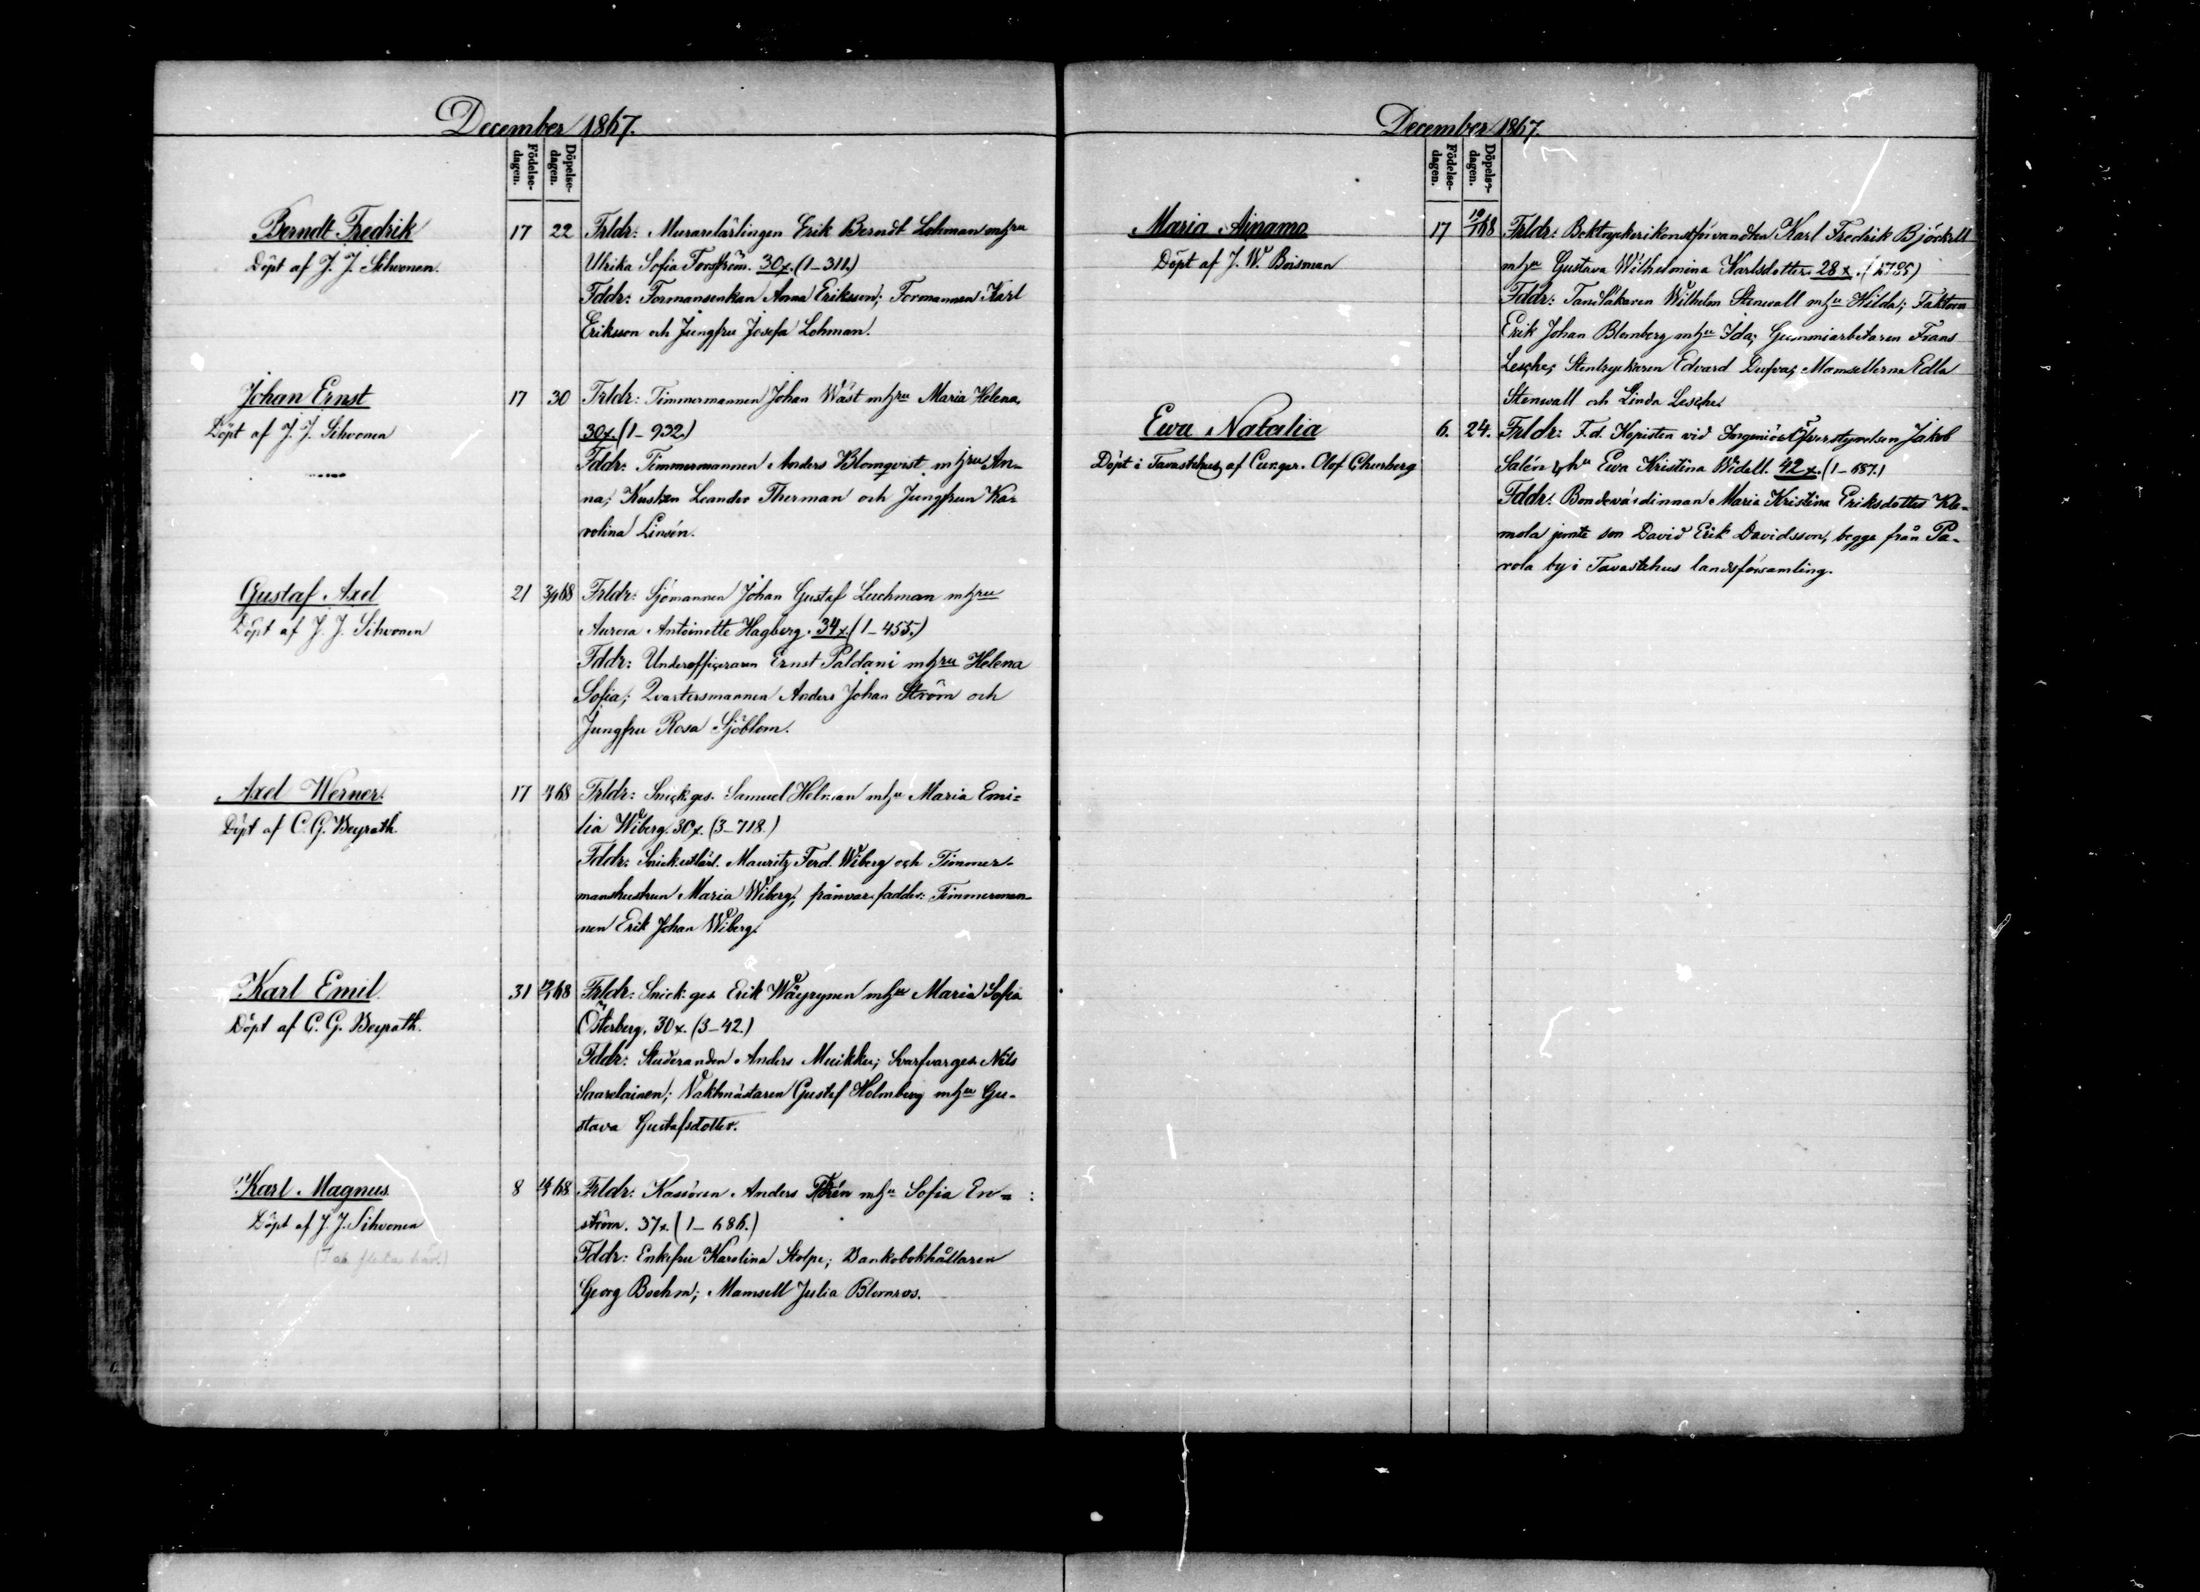 December 1867.
Födelse-
dagen.
Döpelse-
dagen.
Berndt Fredrik
Döpt af J. J. Sihvonen.
17 22
Frldr: Murarelärlingen Erik Berndt Lohman mhru
Ulrika Sofia Forsström. 30x. (1-311.)
Fddr: Formansenkan Anna Eriksson; Formannen Karl
Eriksson och Jungfru Josefa Lohman.
Johan Ernst
Döpt af J. J. Sihvonen
17 30
Frldr: Timmermannen Johan Wäst mhru Maria Helena.
30x. (1-932.)
Fddr: Timmermannen Anders Blomqvist mhru An-
na; Kusken Leander Therman och Jungfrun Ka-
rolina Linsén.
Gustaf Axel
Döpt af J. J. Sihvonen
21 3/1 68
Frldr: Sjömannen Johan Gustaf Leuchman mhru
Aurora Antoinette Hagberg. 34x. (1-455.)
Fddr: Underofficeraren Ernst Paldani mhru Helena
Sofia; Qvartersmannen Anders Johan Ström och
Jungfru Rosa Sjöblom.
Axel Werner.
Döpt af C. G. Beyrath.
17 68
Frldr: Snick. ges. Samuel Helman mhu Maria Emi=
lia Wiberg. 30x. (3-718.)
Fddr: Mauritz Ferd. Wiberg och Timmer-
manshustrun Maria Wiberg; frånvar. fadder: Timmerman-
nen Erik Johan Wiberg.
Karl Emil.
Döpt af C. G. Beyrath.
31 68
Frldr: Snick. ges. Erik Wäyrynen mhu Maria Sofia
Österberg. 30x. (3-42.)
Fddr: Studeranden Anders Muikku; Svarfvareges. Nils
Saarelainen; Vaktmästaren Gustaf Holmberg mhu Gu-
stava Gustafsdotter.
Karl Magnus.
Döpt af J. J. Sihvonen
8 68
Frldr: Kassören Anders mhu Sofia En=
ström. 37x. (1-686.)
Fddr: Enkefru Karolina Stolpe; Bankobokhållaren
Georg Boehm; Mamsell Julia Blomros.
December 1867.
Födelse-
dagen.
Döpelse-
dagen.
Maria Ainamo
Döpt af J. W. Boisman
17 68
Frldr: Boktryckerikonstförvandten Karl Fredrik Björkell
mhu Gustava Wilhelmina Karlsdotter. 28x.
Fddr: Tandläkaren Wilhelm Stenwall mhu Hilda; Faktorn
Erik Johan Blomberg mhu Ida; Gummiarbetaren Frans
Lesche; Stentryckaren Edvard Dufva; Mamsellerna Edla
Stenwall och Linda Lesche.
Ewa Natalia
Döpt i Tavastehus af Cur. ger. Olof Churberg
6. 24.
Frldr: F.d. Kopisten vid Ingeniörs Öfverstyrelsen Jakob
Salén och hu Ewa Kristina Widell. 42x. (1-687.)
Fddr: Bondevärdinnan Maria Kristina Eriksdotter Kle-
mola jemte son David Erik Davidsson, begge från Pa-
rola by i Tavastehus landsförsamling.